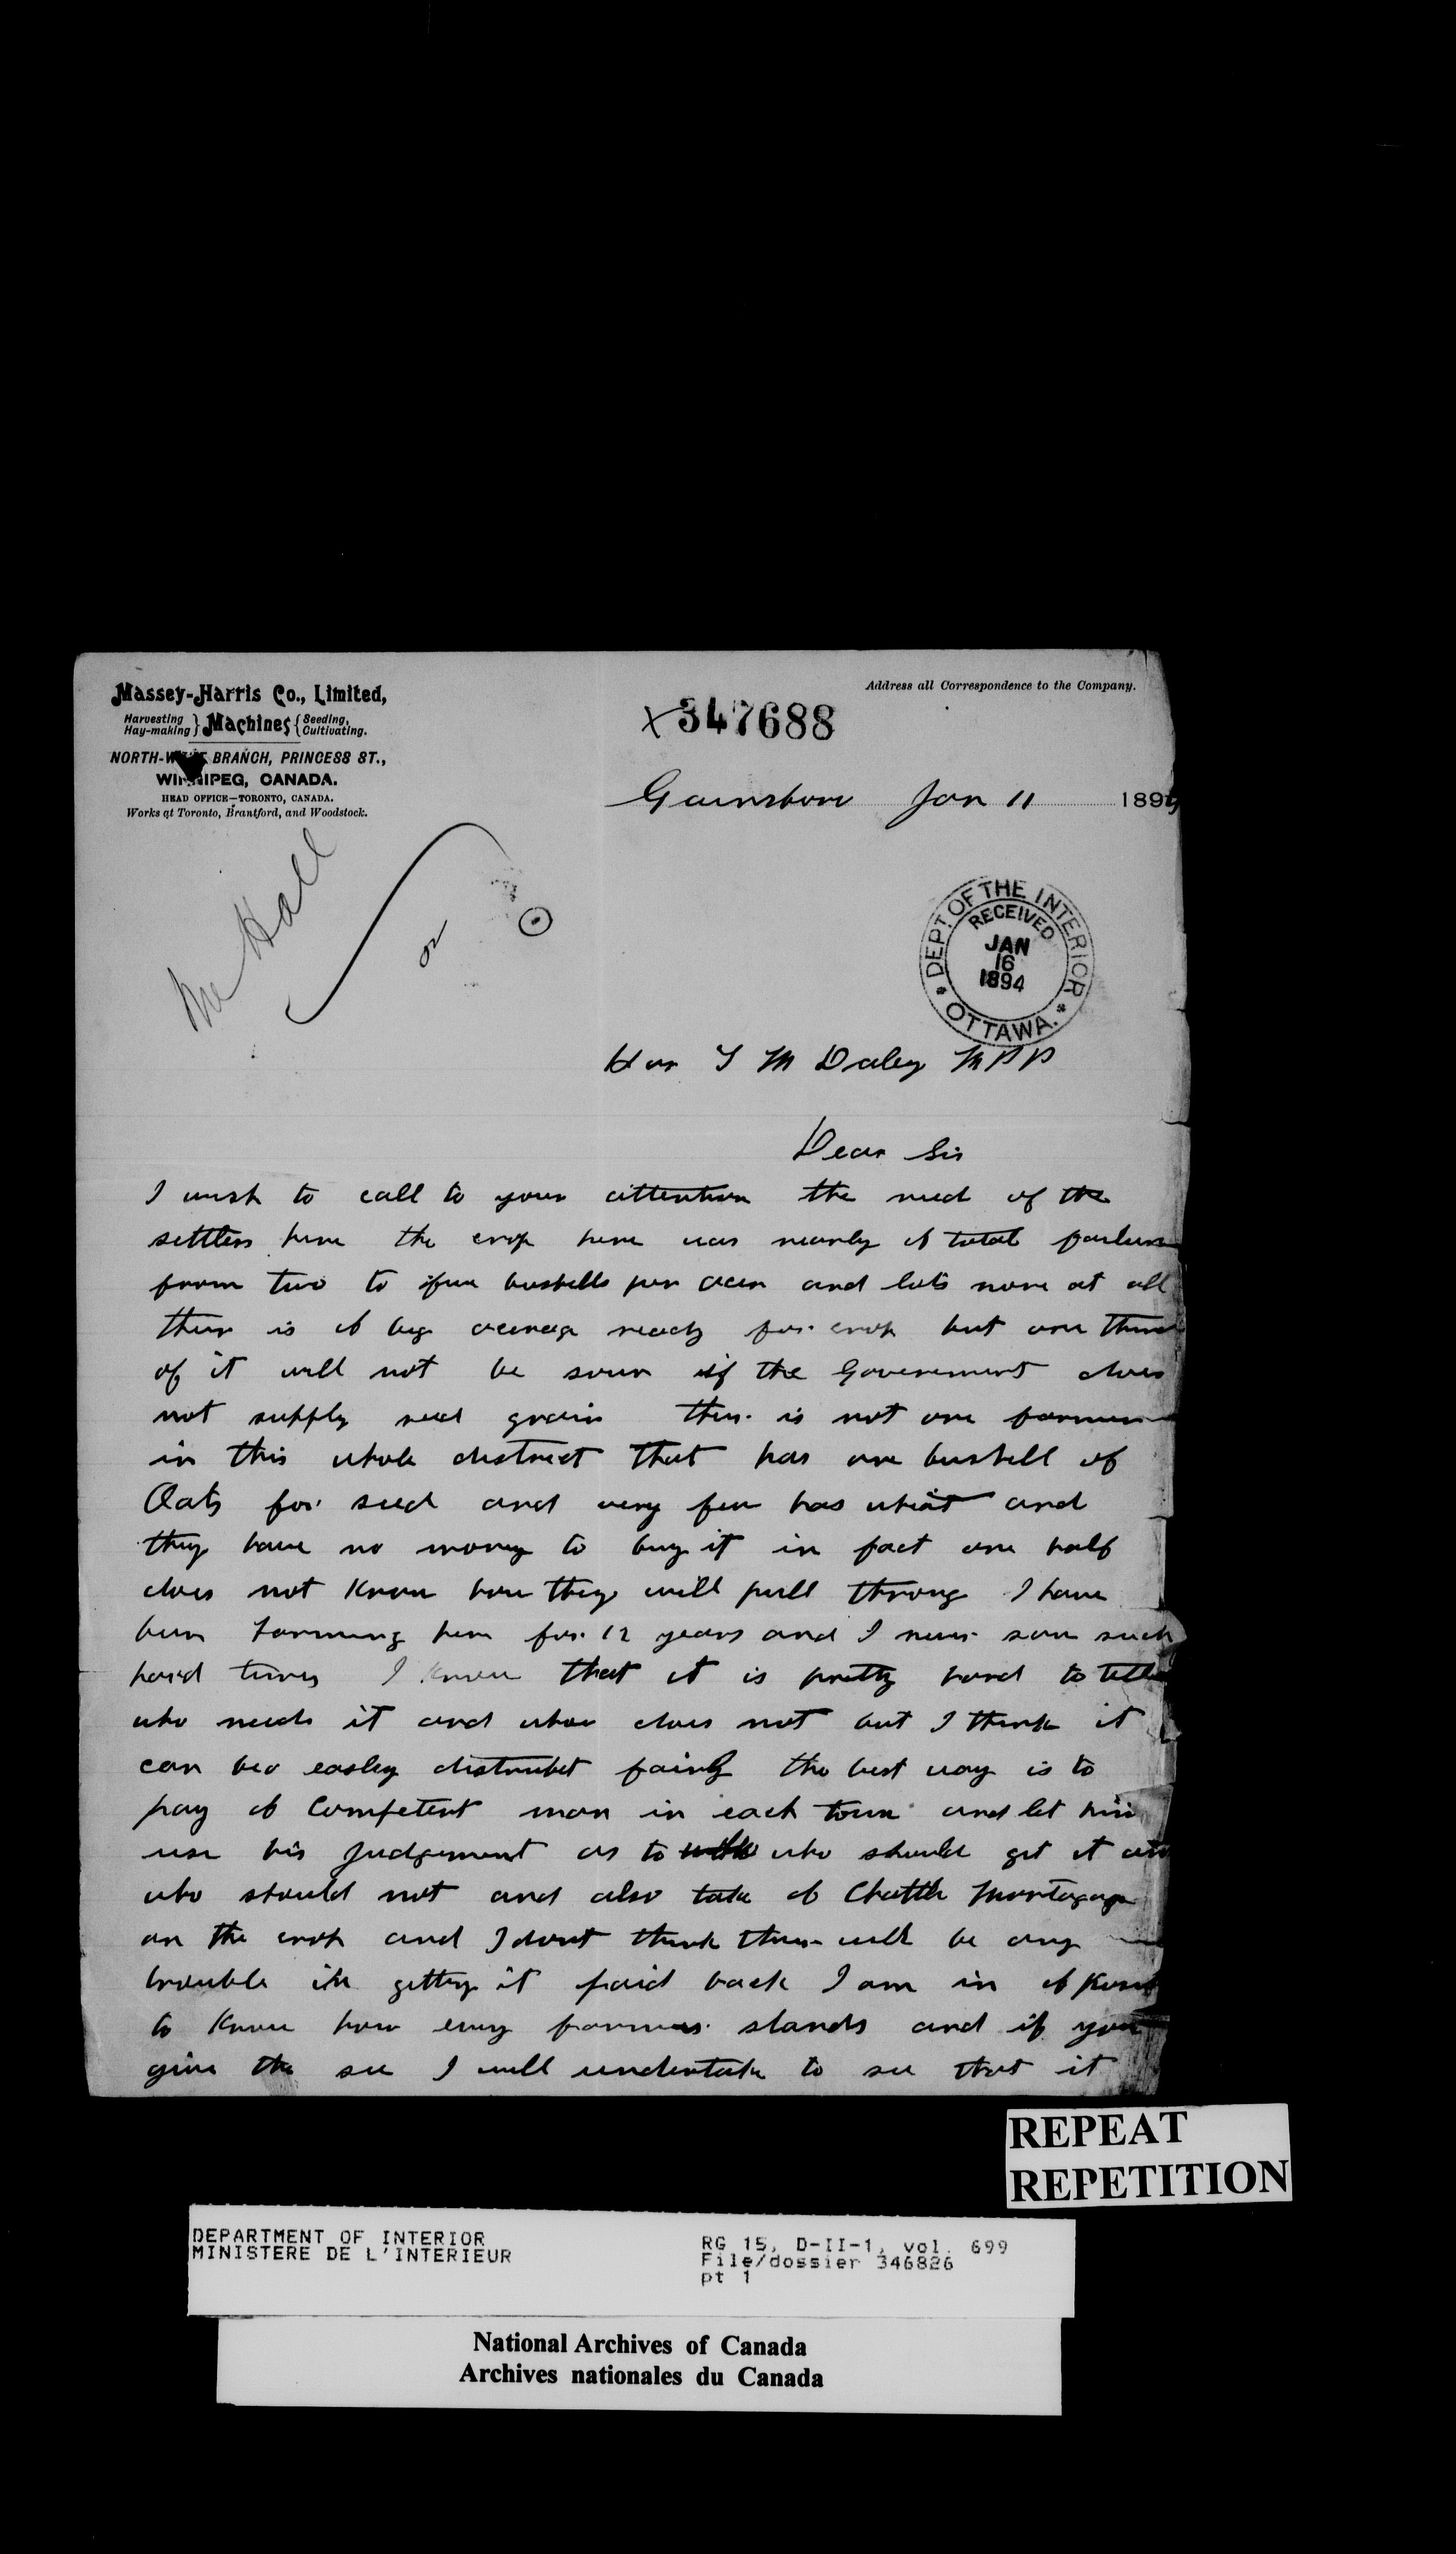 Massey-Harris Co., Limited,
Harvesting Hay-making } Machines { Seeding, Cultivating.
NORTH-WEST BRANCH, PRINCESS ST.,
WINNIPEG, CANADA.
HEAD OFFICE—TORONTO, CANADA.
Works at Toronto, Brantford, and Woodstock.
Address all Correspondence to the Company.
347688
Gainsboro Jan 11 1894
Mr Hall
DEPT OF THE INTERIOR
RECEIVED
JAN
16
1894
OTTAWA.
Hon T M Daley MPP
Dear Sir
I wish to call to your attention the need of the
settlers here the crop here was nearly a total failure
from two to five bushells per acer and lots none at all
ther is a big acerage ready for crop but one third
of it will not be sown if the Goverenment does
not supply seed grain ther is not one farmer
in this whole district that has one bushell of
Oats for seed and very few has wheat and
they have no money to buy it in fact one half
does not Know how they will pull throug I have
been farming here for 12 years and I never saw such
hard times I know that it is pretty hard to tell
who needs it and who does not but I think it
can be easley distrubet fairly the best way is to
pay a Competent man in each town and let him
use his Judgement as to who should get it and
who should not and also take a Chattle Mortagage
on the crop and I dont think ther will be any
trouble in getting it paid back I am in a
to Know how every farmer stands and if you
give the see I will undertake to see that it
REPEAT
REPETITION
DEPARTMENT OF INTERIOR
MINISTERE DE L'INTERIEUR
RG 15, D-II-1, vol. 699
File/dossier 346826
pt 1
National Archives of Canada
Archives nationales du Canada